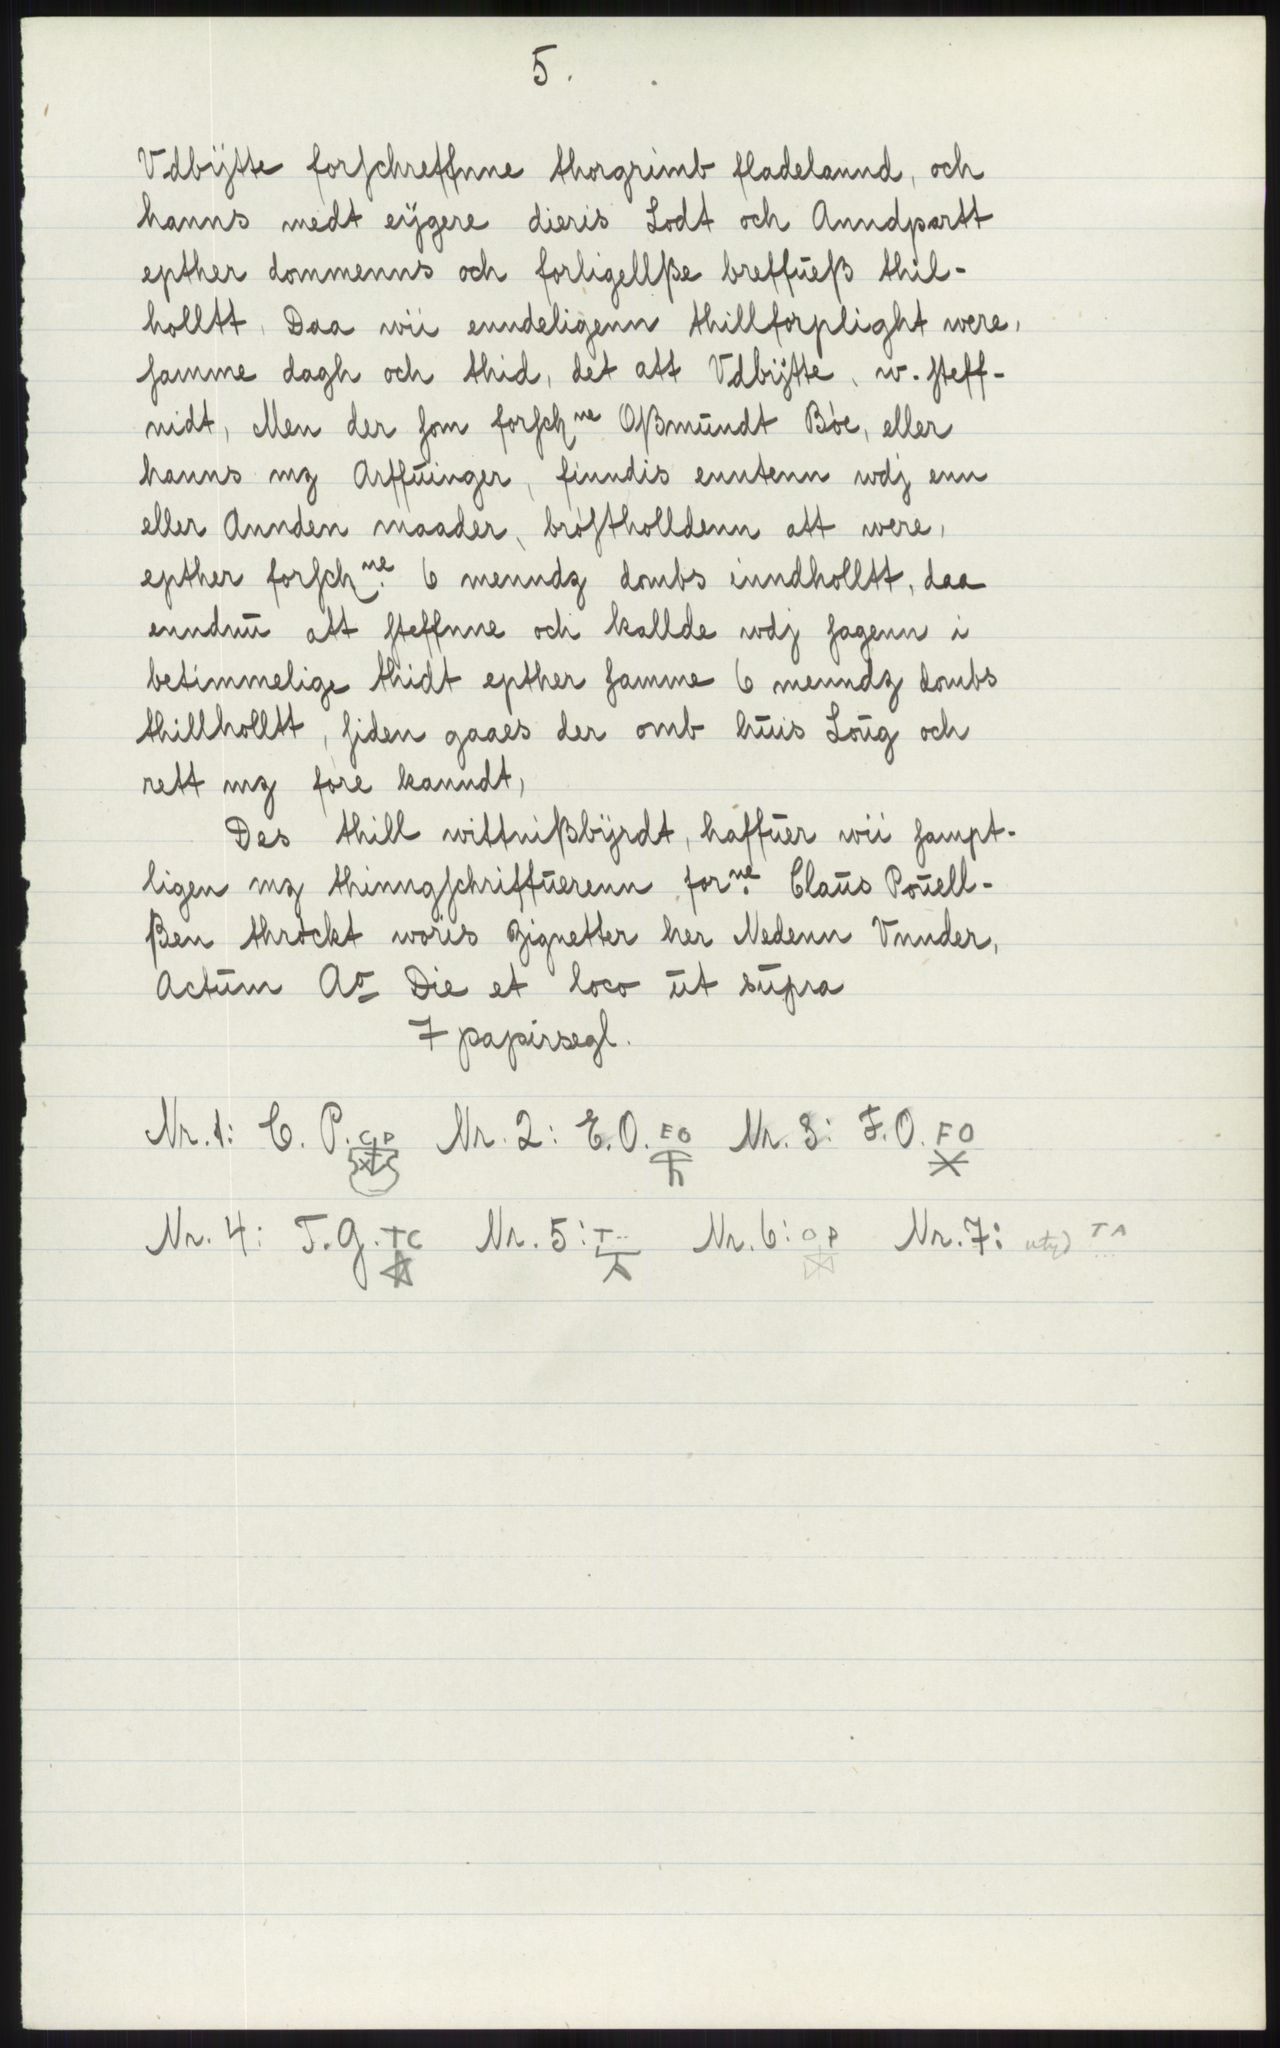 5.
Vdbÿtte forſchreffnne thorgrimb fladelannd, och
hanns medt eÿgere dieris Lodt och Anndpartt
epther dommenns och forligellße breffūeß thil-
holltt, Daa wii enndeligenn thillforplight were,
ſamme dagh och thid, det att Vdbÿtte, w. ſteff-
nidt, Men der ſom forſchne Oßmūndt Bòe, eller
hanns mz Arffūinger, finndis enntenn wdj enn
eller Annden maader, bròſtholldenn att were,
epther forſchne 6 menndz dombs inndholltt, daa
enndnū att ſteffnne och kallde wdj ſagenn i
betimmelige thidt epther ſamme 6 menndz dombs
thillholltt, ſiden gaaes der omb hūis Loūg och
rett mz føre kanndt,
Des thill wittnißbÿrdt, haffūer wii ſampt-
ligen mz thinngſchriffūerenn forne Claūs Poūell-
ßen thròckt wòris Zignetter her Nedenn Vnnder,
Actūm Ao Die et loco ūt sūpra
7 papirsegl.
Nr. 1: C. P. CP Nr. 2: E. O. EO Nr. 3: F. O. FO
Nr. 4: T. G. TC Nr. 5: T... Nr. 6: OP Nr. 7: utyd TA ...